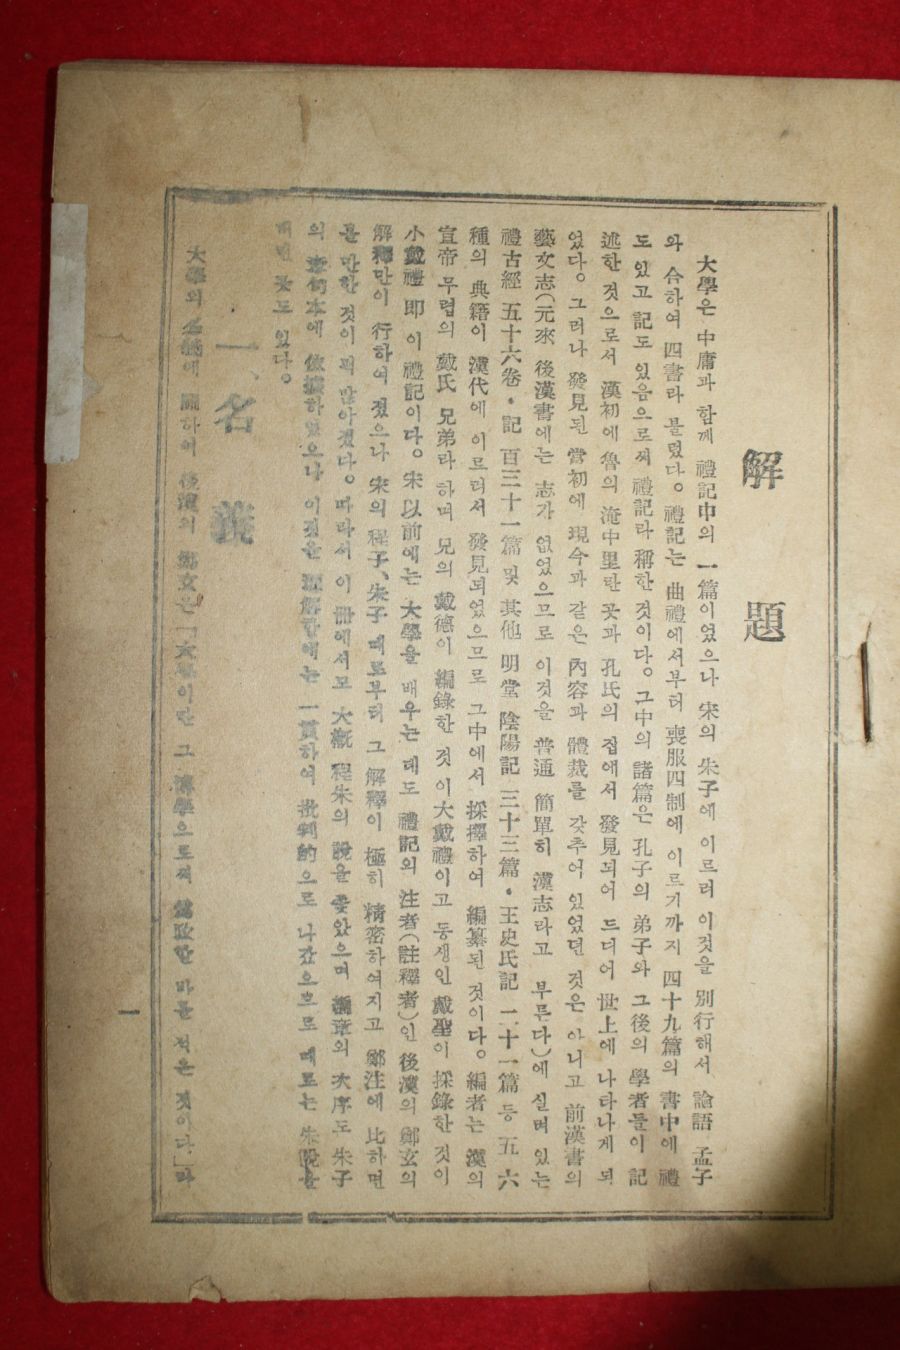 解題
大學은 中庸과 함께 禮記中의 一篇이였으나 宋의 朱子에 이르러 이것을 別行해서 論語 孟子
와 合하여 四書라 불렸다。禮記는 曲禮에서부터 喪服四制에 이르기까지 四十九篇의 書中에 禮
도 있고 記도 있음으로써 禮記라 稱한 것이다。그中의 諸篇은 孔子의 弟子와 그後의 學者들이 記
述한 것으로서 漢初에 魯의 淹中里란 곳과 孔氏의 접애서 發見되어 드디어 世上에 나타나게 되
었다。그러나 發見된 當初에 現今과 같은 內容과 體裁를 갖추어 있었던 것은 아니고 前漢書의
藝文志(元來 後漢書에는 志가 없었으므로 이것을 普通 簡單히 漢志라고 부른다)에 실려 있는
禮古經 五十六卷・記 百三十一篇 및 其他 明堂 陰陽記 三十三篇・王史氏記 二十一篇 등 五 六
種의 典籍이 漢代에 이르러서 發見되었으므로 그中에서 採擇하여 編纂된 것이다。編者는 漢의
宣帝 무렵의 戴氏 兄弟라 하며 兄의 戴德이 編錄한 것 이大戴禮이고 동생인 戴聖이 採錄한 것이
小戴禮 即 이 禮記이다。宋以前에는 大學을 배우는 데도 禮記의 注者(註釋者)인 後漢의 鄭玄의
解釋만이 行하여 졌으나 宋의 程子、朱子 때로부터 그 解釋이 極히 精密하여지고 鄭注에 比하면
볼 만한 것이 퍽 많아졌다。따라서 이 冊에서도 大槪 程朱의 說을 좇았으며 篇章의 次序도 朱子
의 章句本에 依據하였으나 이것을 理解함에는 一貫하여 批判的으로 나갔으므로 때로는 朱說을
버린 곳도 있다。
一、名義
大學의 名義에 關하여 後漢의 鄭玄은「大學이란 그 博學으로써 爲政한 바를 적은 것이다」라
一